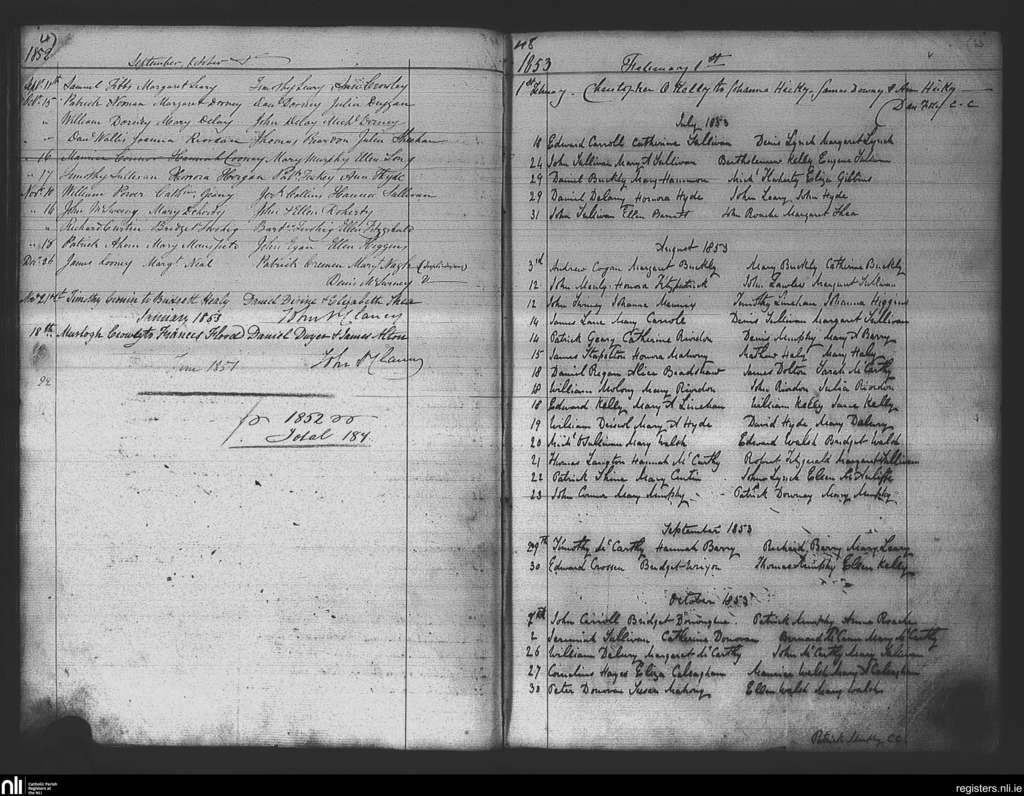 47
1852
September, October
Sept. 11th Samuel Fibby Margaret Leary Timothy Leary Ann Crowley
Oct. 15 Patrick Noonan Margaret Dorney Danl. Dorney Julia Duggan
" William Dorney Mary Delay John Delay Michl. Dorney
" Danl. Wallis Joanna Riordan Thomas Reardon Julia Sheehan
" 16 Maurice Connor Hannah Cooney Mary Murphy Ellen Long
" 17 Timothy Sullivan Honora Horgan Patk. Fahey Ann Hyde
Novr. 10 William Power Cathne. Geany Jno. Collins Hanna Sullivan
" 16 John McSweeny Mary Doherty John & Ellen Doherty
" Richard Curtin Bridget Twohig Bart. Twohig Ellen Fitzgerald
" 18 Patrick Ahern Mary John Egan Ellen Higgens
Decr. 26 James Cooney Margt. Neal Patrick Cremen Margt. Nagle
Denis McSweeney
Novr 21st Timothy to Bridgett Healy Daniel Divine & Elizabeth Shea
January 1853 John McClancy
18th Murtogh Crowly to Frances Flood Daniel Dwyer & James Alton
John McClancy
June 1851
1852
Total 187
48
1853 February 1st
1st February. Christopher O Kelly to Johanna Hickey. James Downey & Ann Hickey
Dan Foley C.C
July 1853
18 Edward Carroll Catherine Sullivan Denis Lynch Margaret Lynch
24 John Sullivan Mary A Sullivan Bartholemew Kelly Eugene Sullivan
29 Daniel Buckley Mary Hannon Michl. Flaherty Eliza Gibbins
29 Daniel Delany Honora Hyde John Leary John Hyde
31 John Sullivan Ellen Barrett John Roache Margaret Shea
August 1853
3rd Andrew Cogan Margaret Buckley Mary Buckley Catherine Buckley
12 John Honora Fitzpatrick John Lawler Margaret Sullivan
12 John Johanna Timothy Linehan Johanna Higgins
14 James Lane Mary Carrole Denis Sullivan Margaret Sullivan
14 Patrick Geary Catherine Riordan Denis Murphy Mary A Barry
15 James Stapelton Honora Mahony Mathew Haly Mary Haly
18 Daniel Regan Alice Bradshaw James Dolton Sarah McCarthy
18 William Molony Mary Riordon John Riordon Julia Riordon
18 Edward Kelly Mary A Linehan William Kelly Jane Kelly
19 William Driscol Mary A Hyde David Hyde Mary Delany
20 Michl. OSullivan Mary Walsh Edward Walsh Bridget Walsh
21 Thomas Langton Hannah McCarthy Robert Fitzgerald Margaret Sullivan
22 Patrick Shine Mary Curtin John Lynch Ellen McAuliffe
23 John Connor Mary Murphy Patrick Downey Mary Murphy
September 1853
29th Timothy McCarthy Hannah Barry Richard Barry Mary Leary
30 Edward Crossen Bridget Wrixon Thomas Murphy Ellen Kelly
October 1853
2nd John Carroll Bridget Donoghue. Patrick Murphy Anna Roache
2 Jeremiah Sullivan Catherine Donovan Bernard McCann Mary McCarthy
26 William Delury Margaret McCarthy John McCarthy Mary Sullivan
27 Cornelius Hayes Eliza Calaghan Maurice Walsh Mary A Calaghan
30 Peter Donovan Susan Mahony Ellen Walsh Mary Walsh
Patrick Murphy C.C.
nli Catholic Parish Registers at the NLI
registers.nli.ie